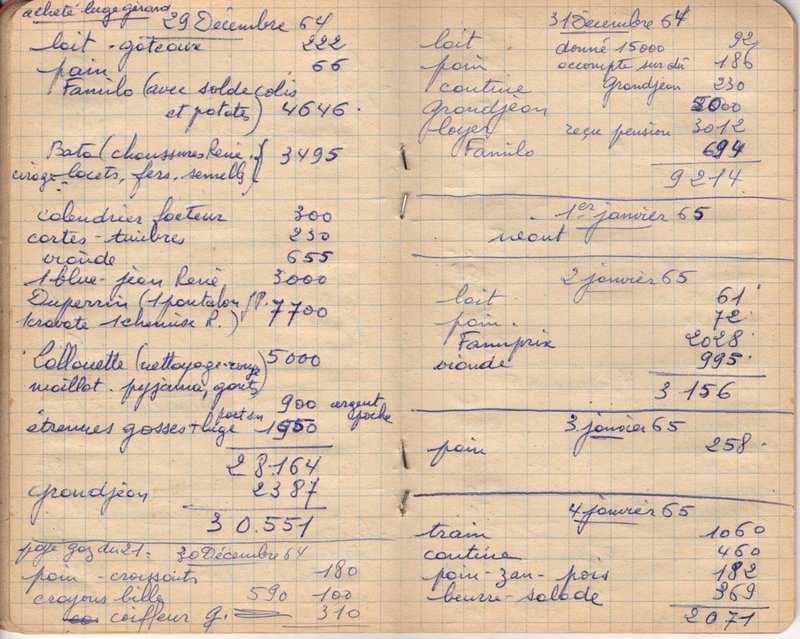 acheté luge gérard
29 Décembre 64
lait - gâteaux 222
pain 66
Familo (avec solde colis
et patates) 4646
Bata (chaussures René, 3495
cirage - lacets, fers, semelles
calendrier facteur 300
cartes - timbres 230
viande 655
1 blue-jean René 3000
Duperrin (1 pantalon J.P. 7700
1 cravate 1 chemise R.)
Lallouette (nettoyage - 5000
maillot - pyjama, gants)
900 argent
poche
étrennes gosses + luge 1950
28.164
Grandjean 2387
30.551
payé gaz du 21 - 30 Décembre 64
pain - croissants 180
crayons bille 590 100
coiffeur g. 310
31 Décembre 64
lait donné 15000 92
pain accompte sur dû 186
cantine Grandjean 230
Grandjean 5000
loyer reçu pension 3012
Familo 694
9214
1er janvier 65
néant
2 janvier 65
lait 61
pain 72
Famiprix 2028
viande 995
3156
3 janvier 65
pain 258
4 janvier 65
train 1060
cantine 460
pain - zan - pois 182
beurre - salade 369
2071